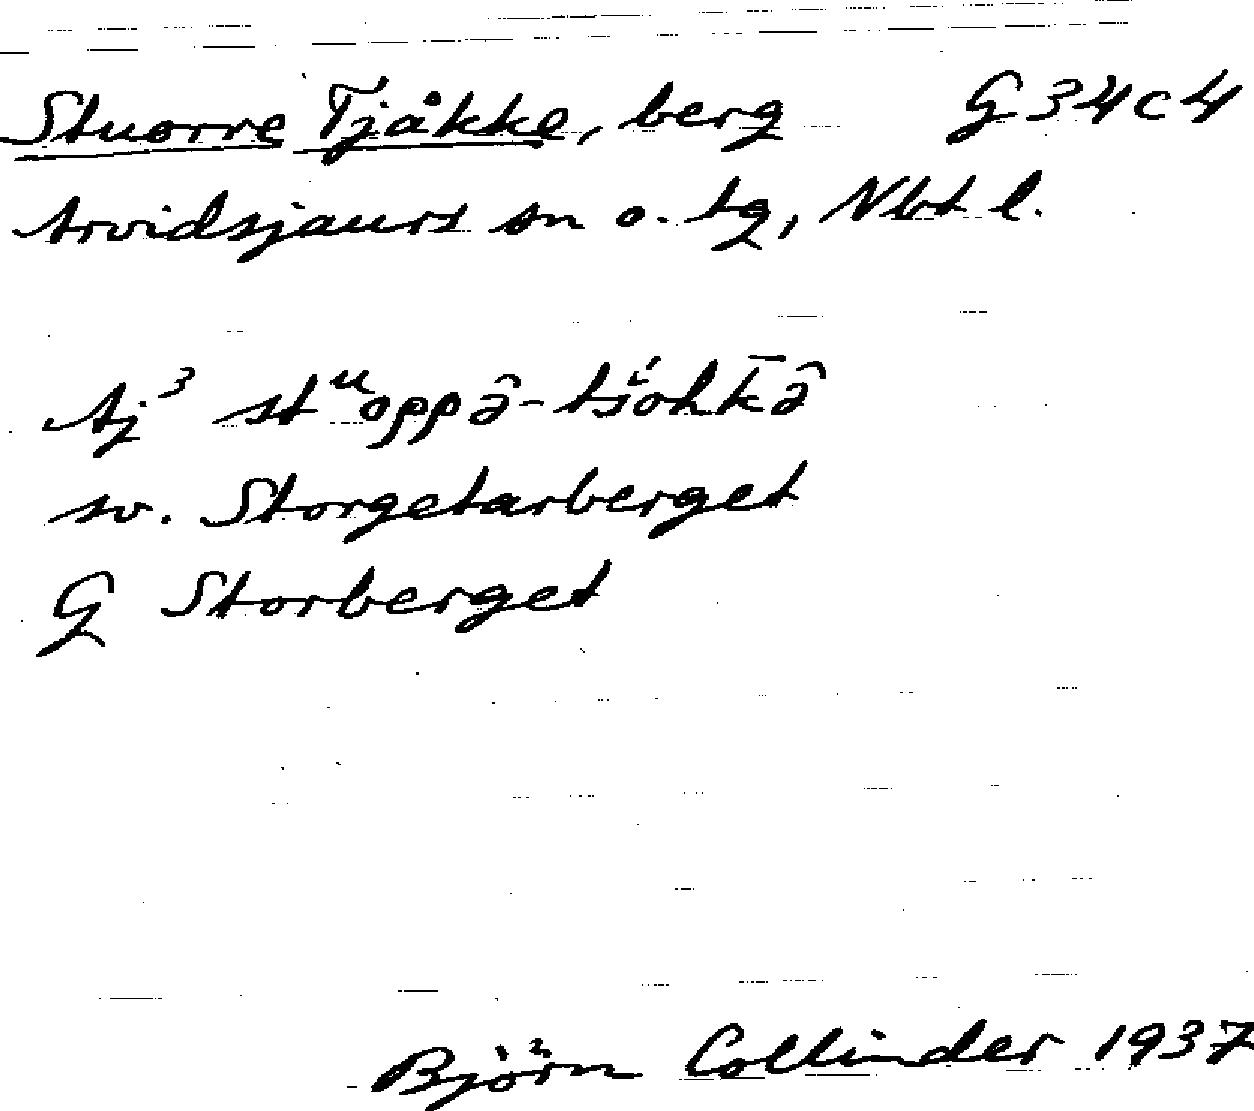 Stuorre Tjåkke, berg G34c4
Arvidsjaurs sn o. tg, Nbt l.
Aj³ stᵘoppâ-tśohk̄â
sv. Storgetarberget
G Storberget
Björn Collinder 1937